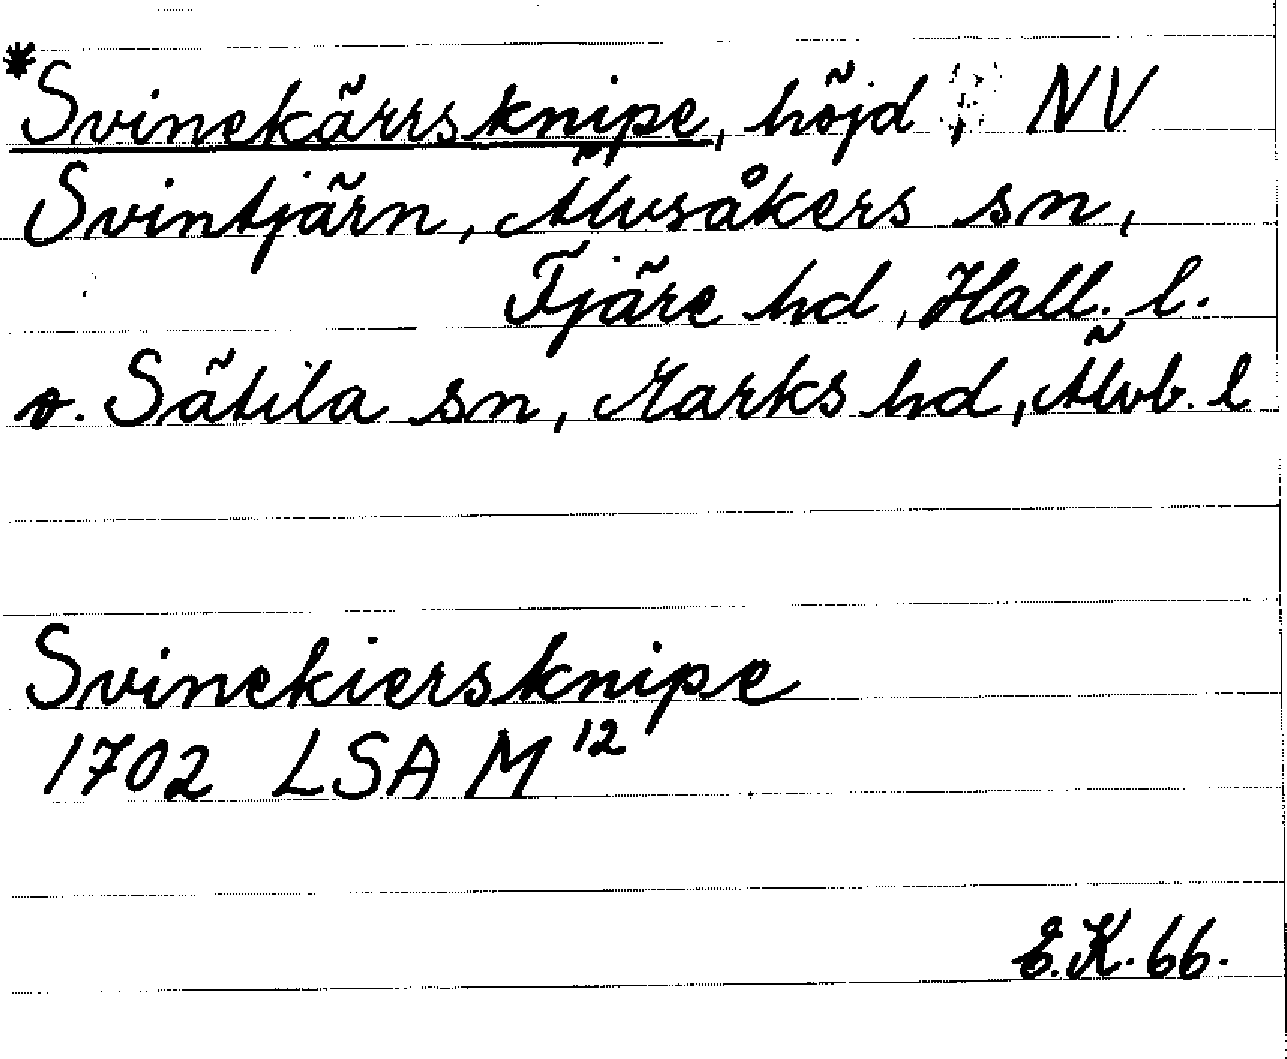 *Svinekärrsknipe, höjd NV
Svintjärn, Älvsåkers sn,
Fjäre hd, Hall. l.
o. Sätila sn, Marks hd, Älvb. l
Svinekiersknipe
1702 LSA M 12
E.K. 66.